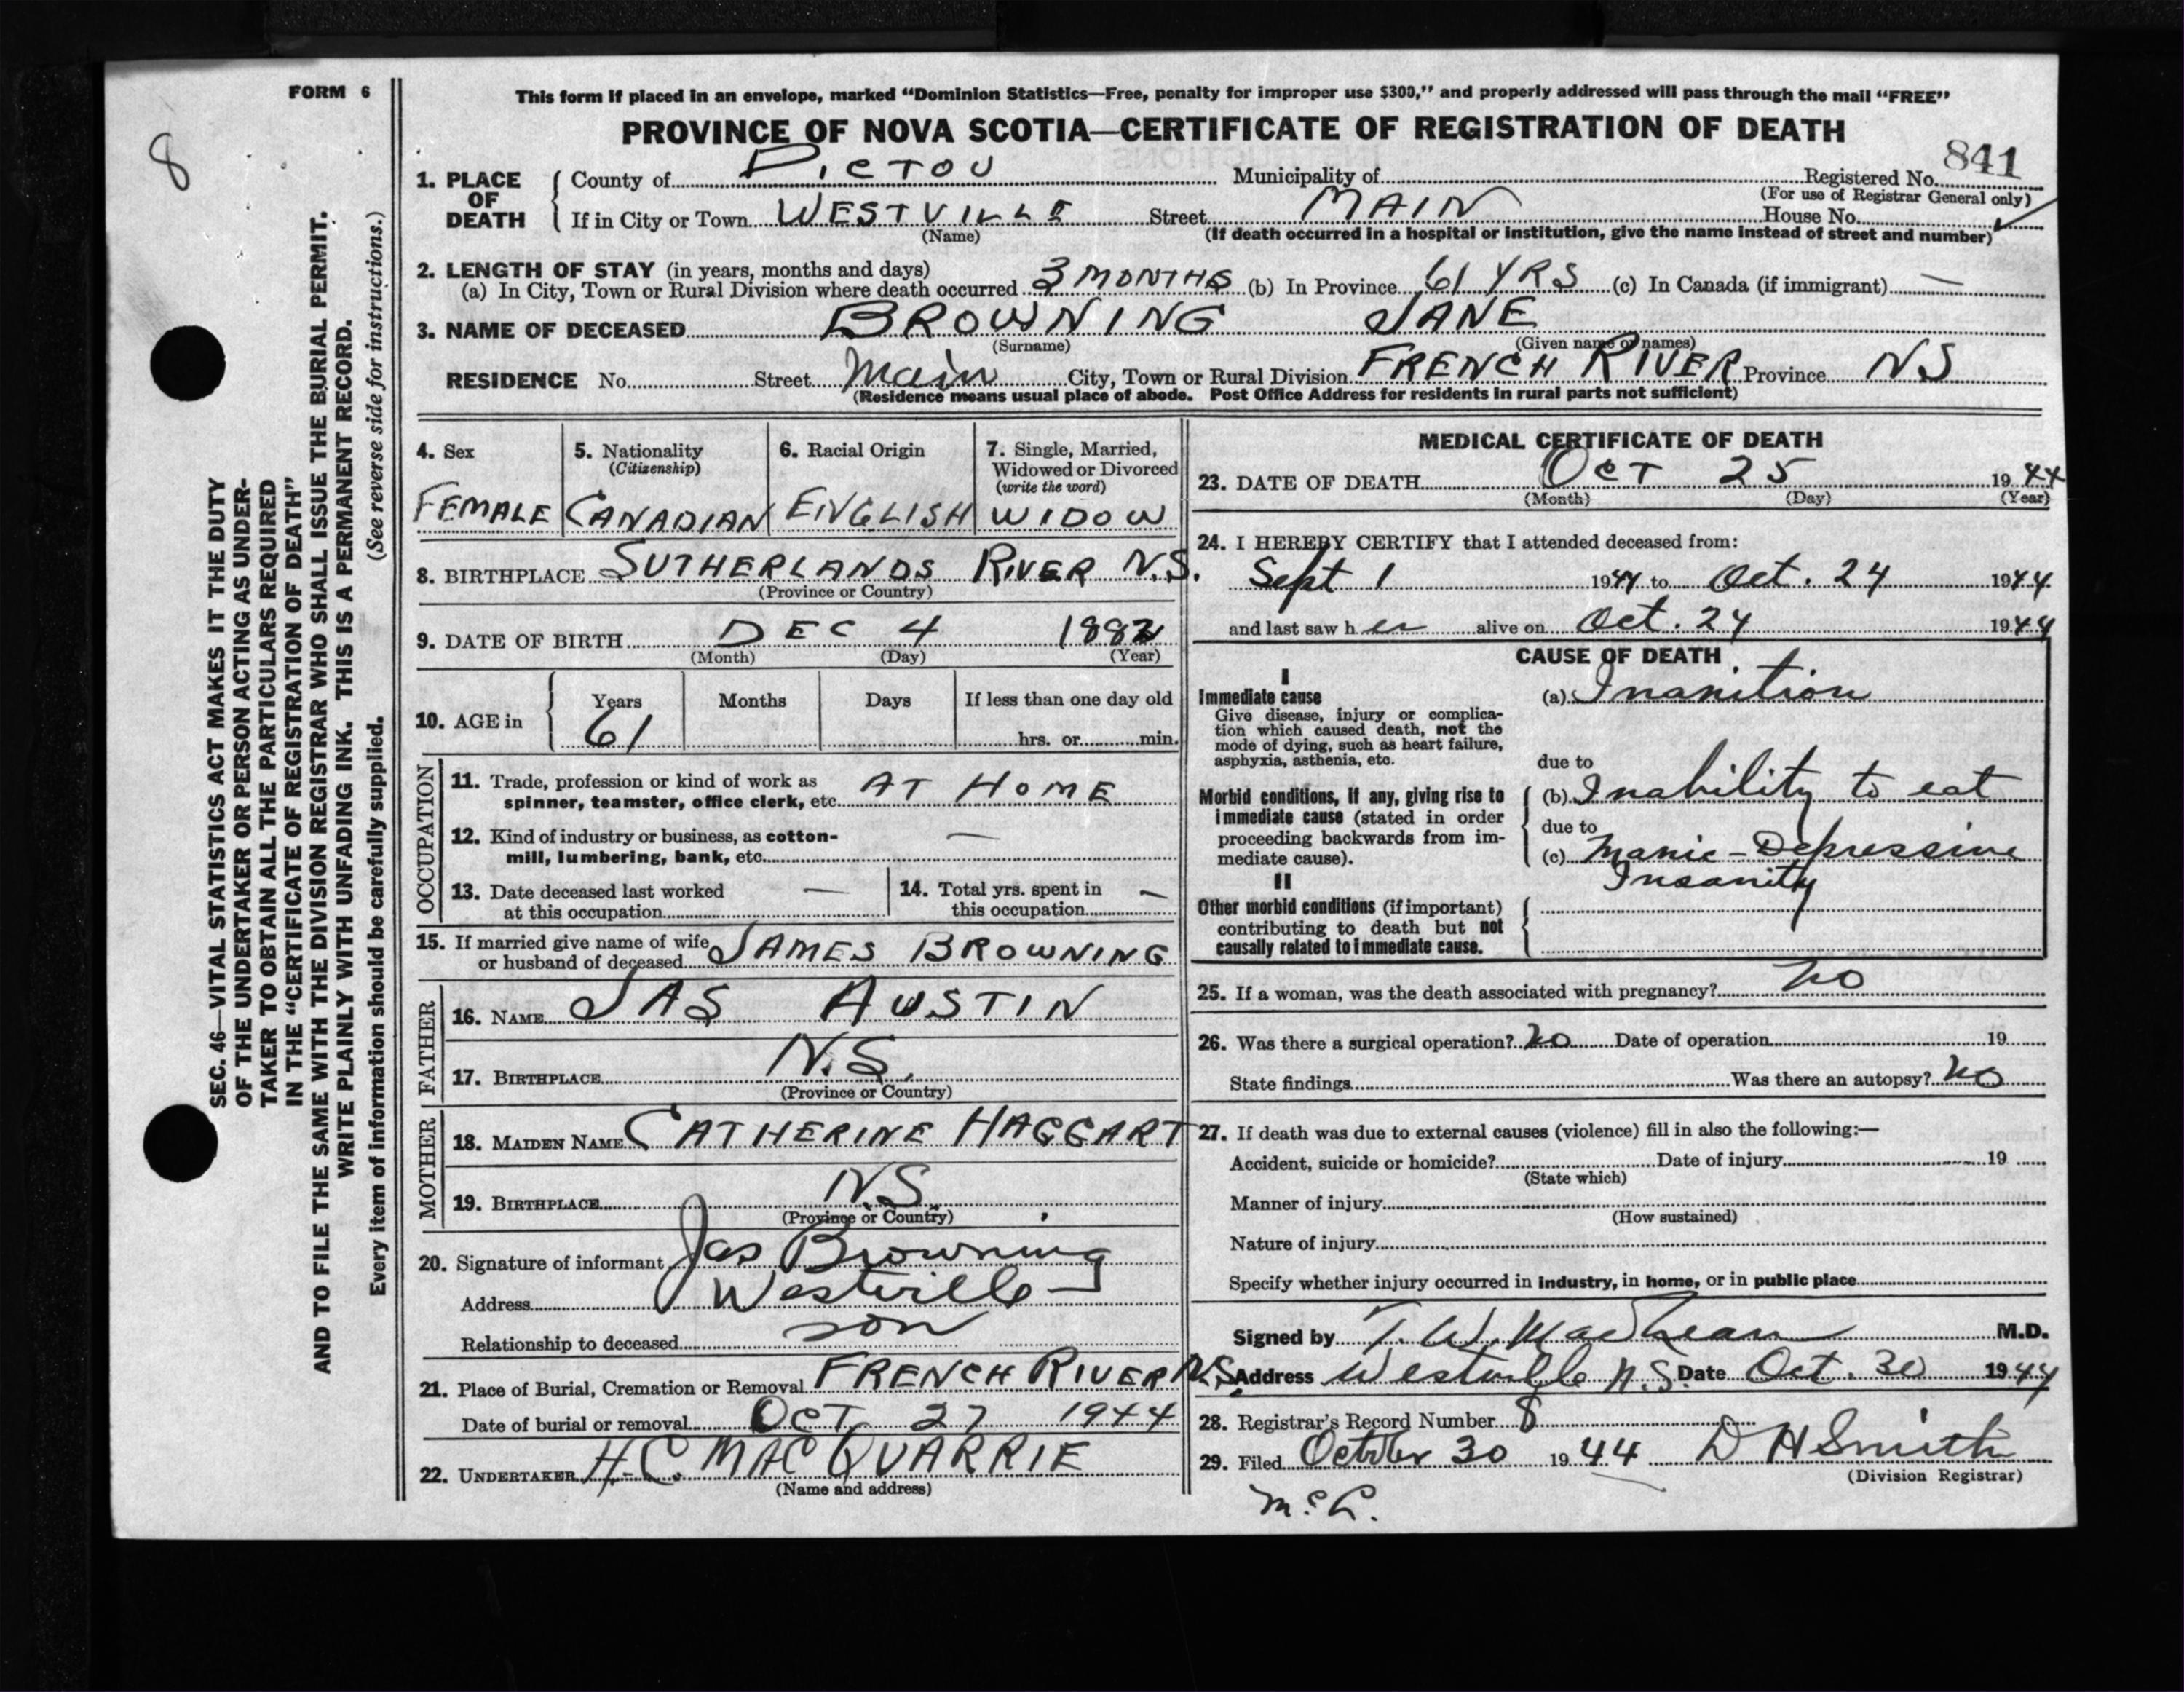 FORM 6
8
SEC. 46—VITAL STATISTICS ACT MAKES IT THE DUTY
OF THE UNDERTAKER OR PERSON ACTING AS UNDER-
TAKER TO OBTAIN ALL THE PARTICULARS REQUIRED
IN THE "CERTIFICATE OF REGISTRATION OF DEATH"
AND TO FILE THE SAME WITH THE DIVISION REGISTRAR WHO SHALL ISSUE THE BURIAL PERMIT.
WRITE PLAINLY WITH UNFADING INK. THIS IS A PERMANENT RECORD.
Every item of information should be carefully supplied. (See reverse side for instructions.)
This form if placed in an envelope, marked "Dominion Statistics—Free, penalty for improper use $300," and properly addressed will pass through the mail "FREE"
PROVINCE OF NOVA SCOTIA—CERTIFICATE OF REGISTRATION OF DEATH
1. PLACE OF DEATH
County of PICTOU Municipality of Registered No. 841
(For use of Registrar General only)
If in City or Town WESTVILLE Street MAIN House No.
(Name) (If death occurred in a hospital or institution, give the name instead of street and number)
2. LENGTH OF STAY (in years, months and days)
(a) In City, Town or Rural Division where death occurred 3 MONTHS (b) In Province 61 YRS (c) In Canada (if immigrant) —
3. NAME OF DECEASED BROWNING JANE
(Surname) (Given name or names)
RESIDENCE No. Street Main City, Town or Rural Division FRENCH RIVER Province NS
(Residence means usual place of abode. Post Office Address for residents in rural parts not sufficient)
4. Sex
FEMALE
5. Nationality
(Citizenship)
CANADIAN
6. Racial Origin
ENGLISH
7. Single, Married,
Widowed or Divorced
(write the word)
WIDOW
8. BIRTHPLACE SUTHERLANDS RIVER N.S.
(Province or Country)
9. DATE OF BIRTH DEC 4
(Month) (Day) (Year)
10. AGE in
Years Months Days If less than one day old
61 hrs. or min.
OCCUPATION
11. Trade, profession or kind of work as
spinner, teamster, office clerk, etc. AT HOME
12. Kind of industry or business, as cotton-
mill, lumbering, bank, etc. —
13. Date deceased last worked
at this occupation —
14. Total yrs. spent in
this occupation —
15. If married give name of wife
or husband of deceased JAMES BROWNING
FATHER
16. NAME JAS AUSTIN
17. BIRTHPLACE N.S.
(Province or Country)
MOTHER
18. MAIDEN NAME CATHERINE HAGGART
19. BIRTHPLACE NS
(Province or Country)
20. Signature of informant Jas Browning
Address Westville
Relationship to deceased son
21. Place of Burial, Cremation or Removal FRENCH RIVER N.S.
Date of burial or removal OCT 27 1944
22. UNDERTAKER H.C. MACQUARRIE
(Name and address)
MEDICAL CERTIFICATE OF DEATH
23. DATE OF DEATH OCT 25 1944
(Month) (Day) (Year)
24. I HEREBY CERTIFY that I attended deceased from:
Sept 1 1944 to Oct. 24 1944
and last saw her alive on Oct. 24 1944
CAUSE OF DEATH
I
Immediate cause
Give disease, injury or complica-
tion which caused death, not the
mode of dying, such as heart failure,
asphyxia, asthenia, etc.
(a) Inanition
due to
Morbid conditions, if any, giving rise to
immediate cause (stated in order
proceeding backwards from im-
mediate cause).
(b) Inability to eat
due to
(c) Manic-Depressive
Insanity
II
Other morbid conditions (if important)
contributing to death but not
causally related to immediate cause.
25. If a woman, was the death associated with pregnancy? no
26. Was there a surgical operation? no Date of operation 19
State findings Was there an autopsy? no
27. If death was due to external causes (violence) fill in also the following:—
Accident, suicide or homicide? Date of injury 19
(State which)
Manner of injury
(How sustained)
Nature of injury
Specify whether injury occurred in industry, in home, or in public place
Signed by T. W. MacLean M.D.
Address Westville N.S. Date Oct. 30 1944
28. Registrar's Record Number 8
29. Filed October 30 1944 D H Smith
(Division Registrar)